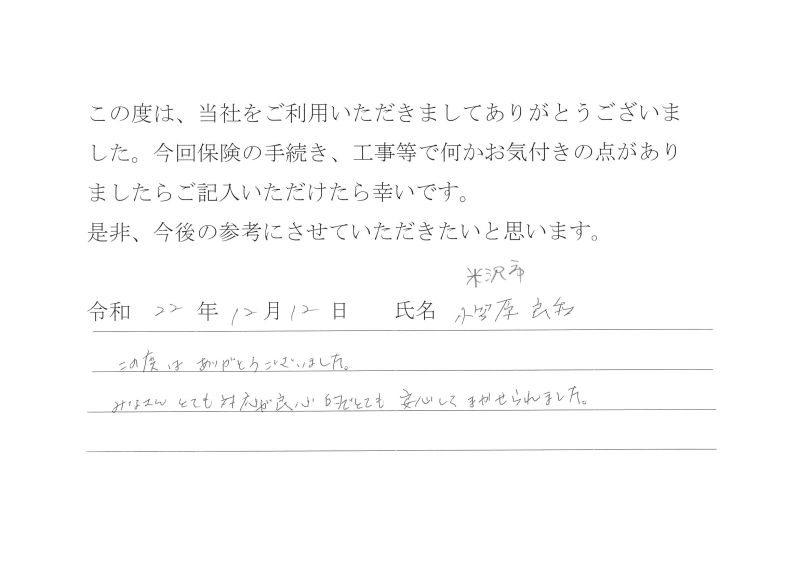 この度は、当社をご利用いただきましてありがとうございま
した。今回保険の手続き、工事等で何かお気付きの点があり
ましたらご記入いただけたら幸いです。
是非、今後の参考にさせていただきたいと思います。
米沢市
令和 22 年 12 月 12 日 氏名 小笠原
この度は ありがとうございました。
みなさん とても 対応が良心的でとても 安心して まかせられました。